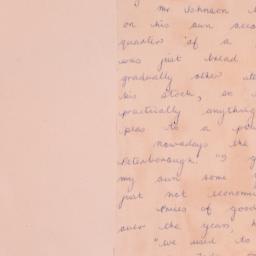 Mr Johnson
on his own acco
quarter of a
was just bread
gradually other ite
his stock, so
practically anything
peas to a
nowadays the
Peterborough. "I
my own home
just not economi
Prices of good
over the years,
"We used to